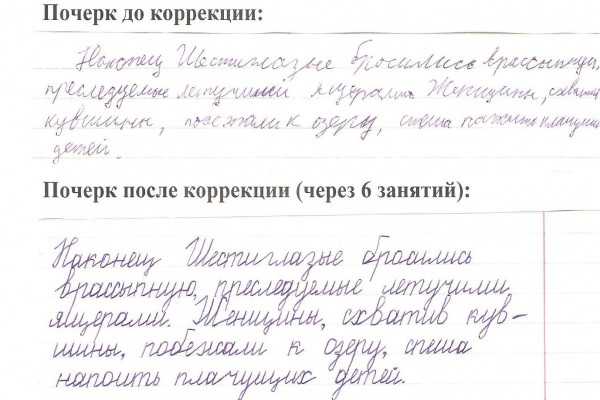 Почерк до коррекции:
Наконец Шестиглазые бросились врассыпную,
преследуемые летучими ящерами. Женщины, схватив
кувшины, побежали к озеру, спеша напоить плачущих
детей.
Почерк после коррекции (через 6 занятий):
Наконец Шестиглазые бросились
врассыпную, преследуемые летучими
ящерами. Женщины, схватив кув-
шины, побежали к озеру, спеша
напоить плачущих детей.